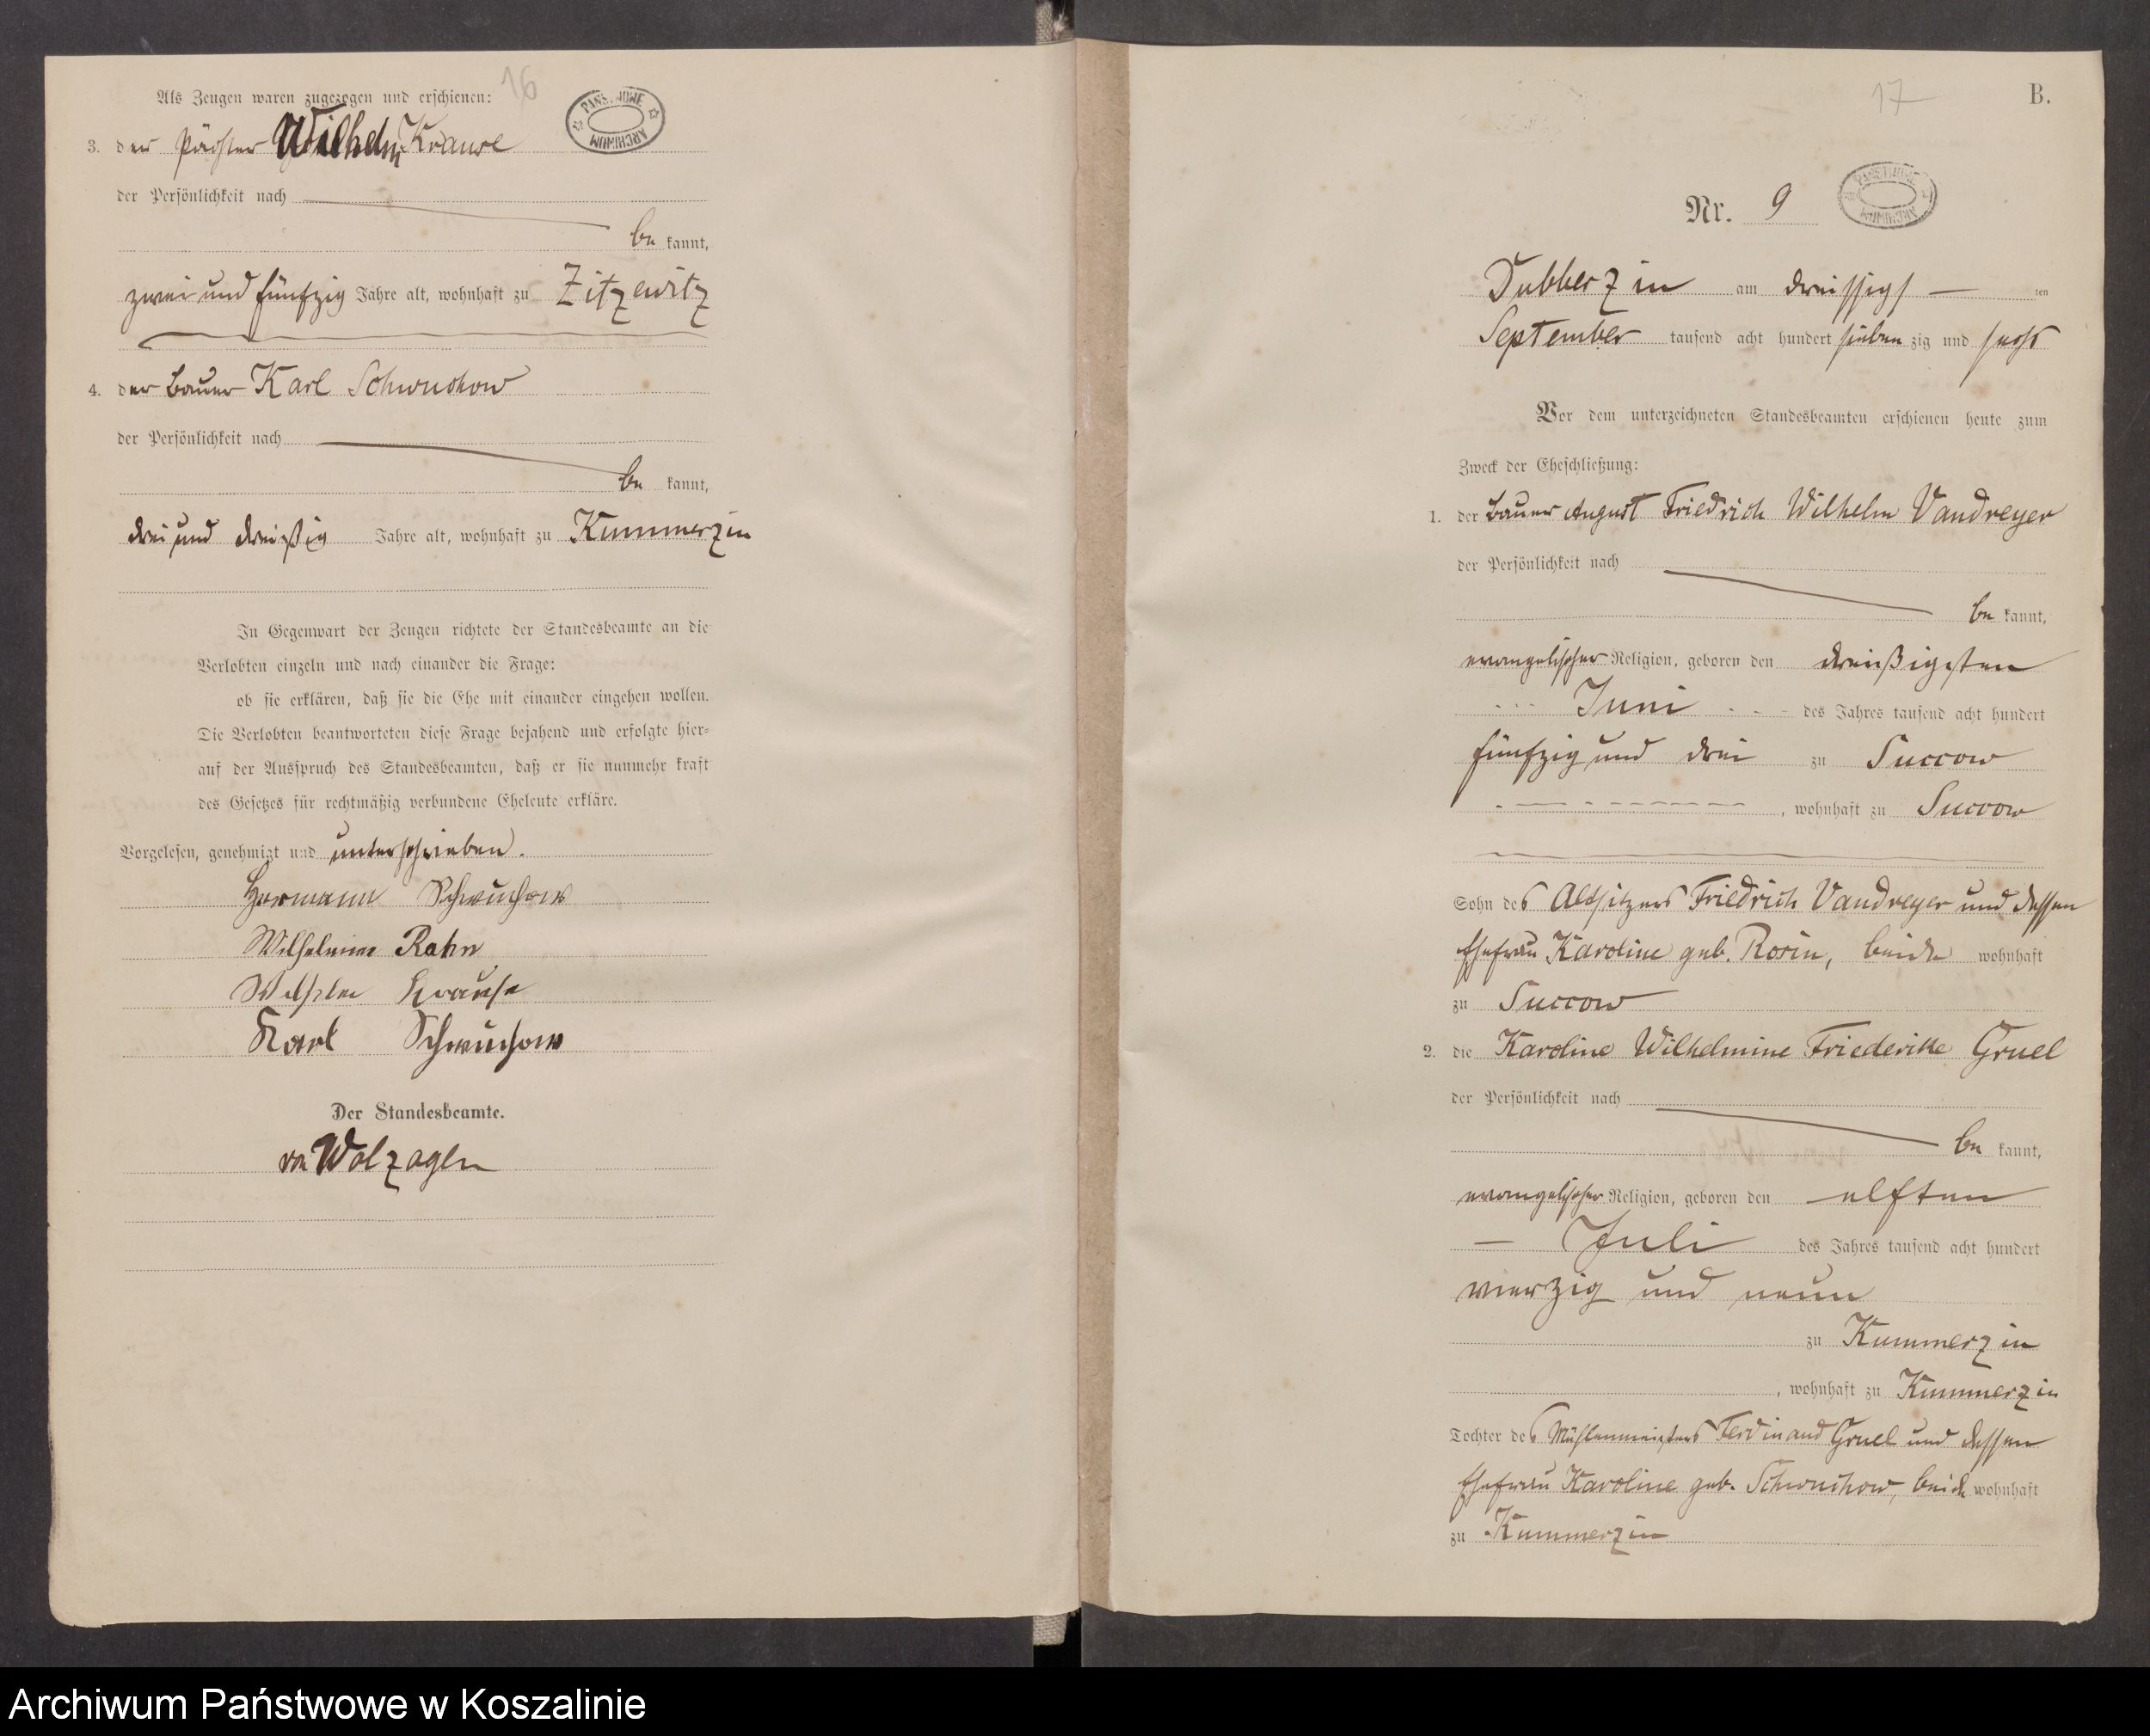 16
Als Zeugen waren zugezogen und erschienen:
PAŃSTWOWE ARCHIWUM
3. der Pächter Wilhelm Krause
der Persönlichkeit nach
be kannt,
zwei und fünfzig Jahre alt, wohnhaft zu Zitzewitz
4. der Bauer Karl Schwuchow
der Persönlichkeit nach
be kannt,
drei und dreißig Jahre alt, wohnhaft zu Kummerzin
In Gegenwart der Zeugen richtete der Standesbeamte an die
Verlobten einzeln und nach einander die Frage:
ob sie erklären, daß sie die Ehe mit einander eingehen wollen.
Die Verlobten beantworteten diese Frage bejahend und erfolgte hier-
auf der Ausspruch des Standesbeamten, daß er sie nunmehr kraft
des Gesetzes für rechtmäßig verbundene Eheleute erkläre.
Vorgelesen, genehmigt und unterschrieben.
Hermann Schwuchow
Wilhelmine Rahn
Wilhelm Krause
Karl Schwuchow
Der Standesbeamte.
von Wolzogen
17
B.
Nr. 9
PAŃSTWOWE ARCHIWUM
Dubberzin am dreissigs ten
September tausend acht hundert sieben zig und sechs
Vor dem unterzeichneten Standesbeamten erschienen heute zum
Zweck der Eheschließung:
1. der Bauer August Friedrich Wilhelm Vandreyer
der Persönlichkeit nach
be kannt,
evangelischer Religion, geboren den dreißigsten
Juni des Jahres tausend acht hundert
fünfzig und drei zu Succow
, wohnhaft zu Succow
Sohn des Altsitzers Friedrich Vandreyer und dessen
Ehefrau Karoline geb. Rosin, beide wohnhaft
zu Succow
2. die Karoline Wilhelmine Friederike Gruel
der Persönlichkeit nach
be kannt,
evangelischer Religion, geboren den elften
Juli des Jahres tausend acht hundert
vierzig und neun
zu Kummerzin
, wohnhaft zu Kummerzin
Tochter des Mühlenmeisters Ferdinand Gruel und dessen
Ehefrau Karoline geb. Schwuchow, beide wohnhaft
zu Kummerzin
Archiwum Państwowe w Koszalinie